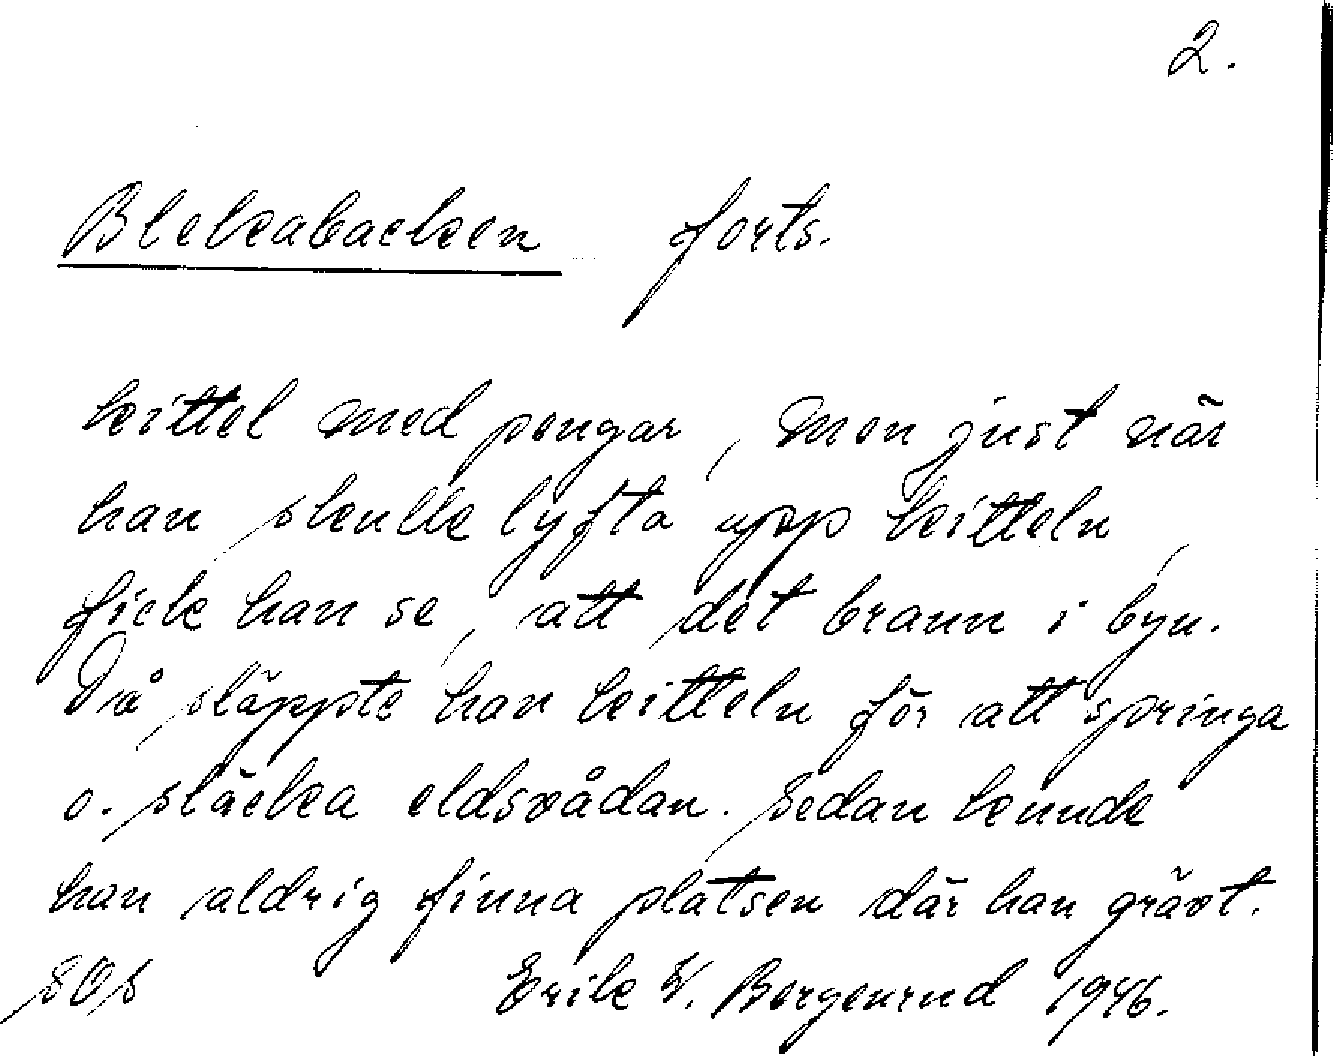 2.
Blekabacken forts.
kittel med pengar, men just när
han skulle lyfta upp kitteln,
fick han se, att det brann i byn.
Då släppte han kitteln för att springa
o. släcka eldsvådan. Sedan kunde
han aldrig finna platsen där han grävt.
SOS Erik W. Bergenrud 1946.